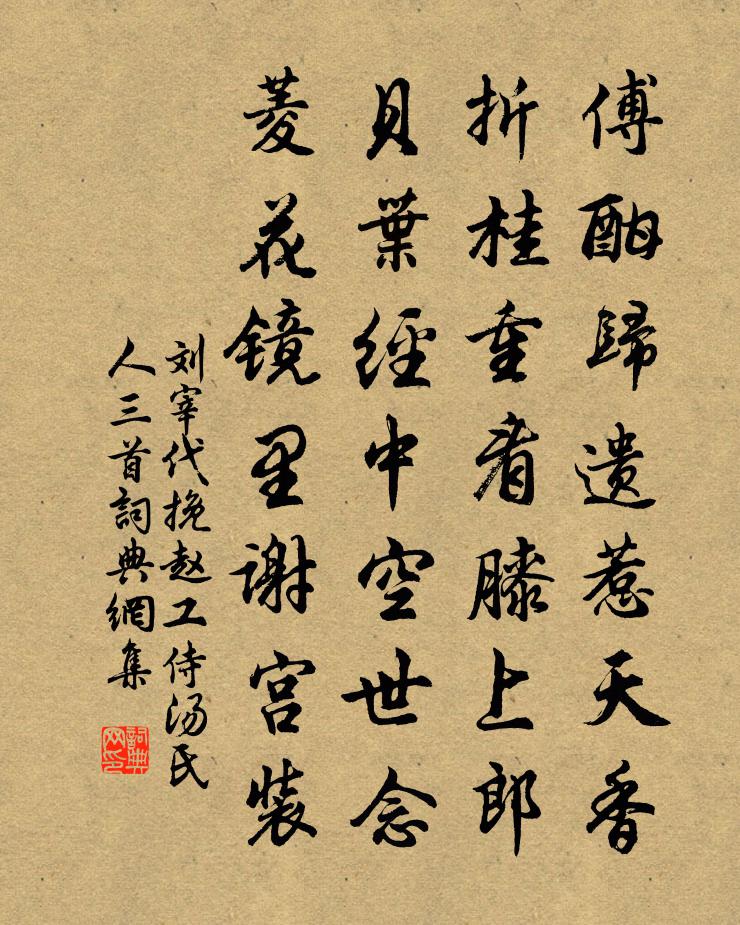 傅酣歸遗惹天香
折桂重看膝上郎
貝葉經中空世念
菱花镜里谢宫装
刘宰代挽赵工侍汤氏
人三首詞典網集
詞典
网印